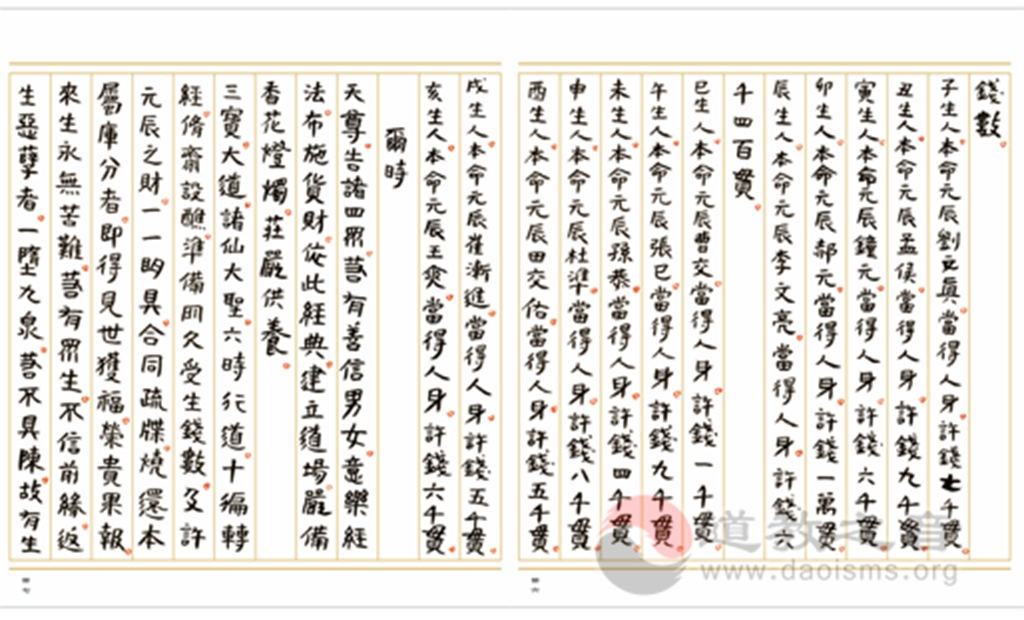 錢數
子生人本命元辰劉文真當得人身許錢七千貫
丑生人本命元辰孟侯當得人身許錢九千貫
寅生人本命元辰鐘元當得人身許錢六千貫
卯生人本命元辰郝元當得人身許錢一萬貫
辰生人本命元辰李文亮當得人身許錢六
千四百貫
巳生人本命元辰曹交當得人身許錢一千貫
午生人本命元辰張巳當得人身許錢九千貫
未生人本命元辰孫恭當得人身許錢四千貫
申生人本命元辰杜準當得人身許錢八千貫
酉生人本命元辰田交佑當得人身許錢五千貫
戌生人本命元辰崔漸進當得人身許錢五千貫
亥生人本命元辰王爽當得人身許錢六千貫
爾時
天尊告諸四眾若有善信男女意樂經
法布施貨財依此經典建立道場嚴備
香花燈燭莊嚴供養
三寶大道諸仙大聖六時行道十徧轉
經脩齋設醮準備回欠受生錢數及許
元辰之財一一明具合同疏牒燒還本
屬庫分者即得見世獲福榮貴果報
來生永無苦難若有眾生不信前緣返
生惡孽者一墮九泉若不具陳故有生
道教之音
www.daoisms.org